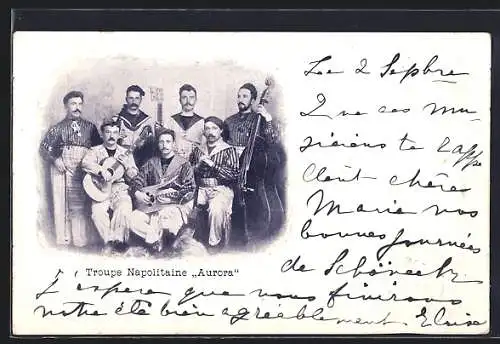 Le 2 Sepbre
Que ces mu-
siciens te rapp
elent chère
Marie nos
bonnes journées
de Schöneck,
Troupe Napolitaine „Aurora“
j'espère que nous finirons
notre été bien agréablement. Eloïse